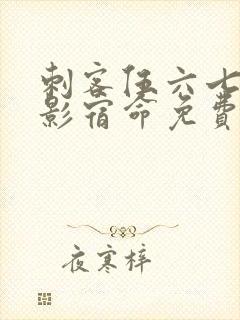 刺客伍六七
影宿命免费
夜寒梓